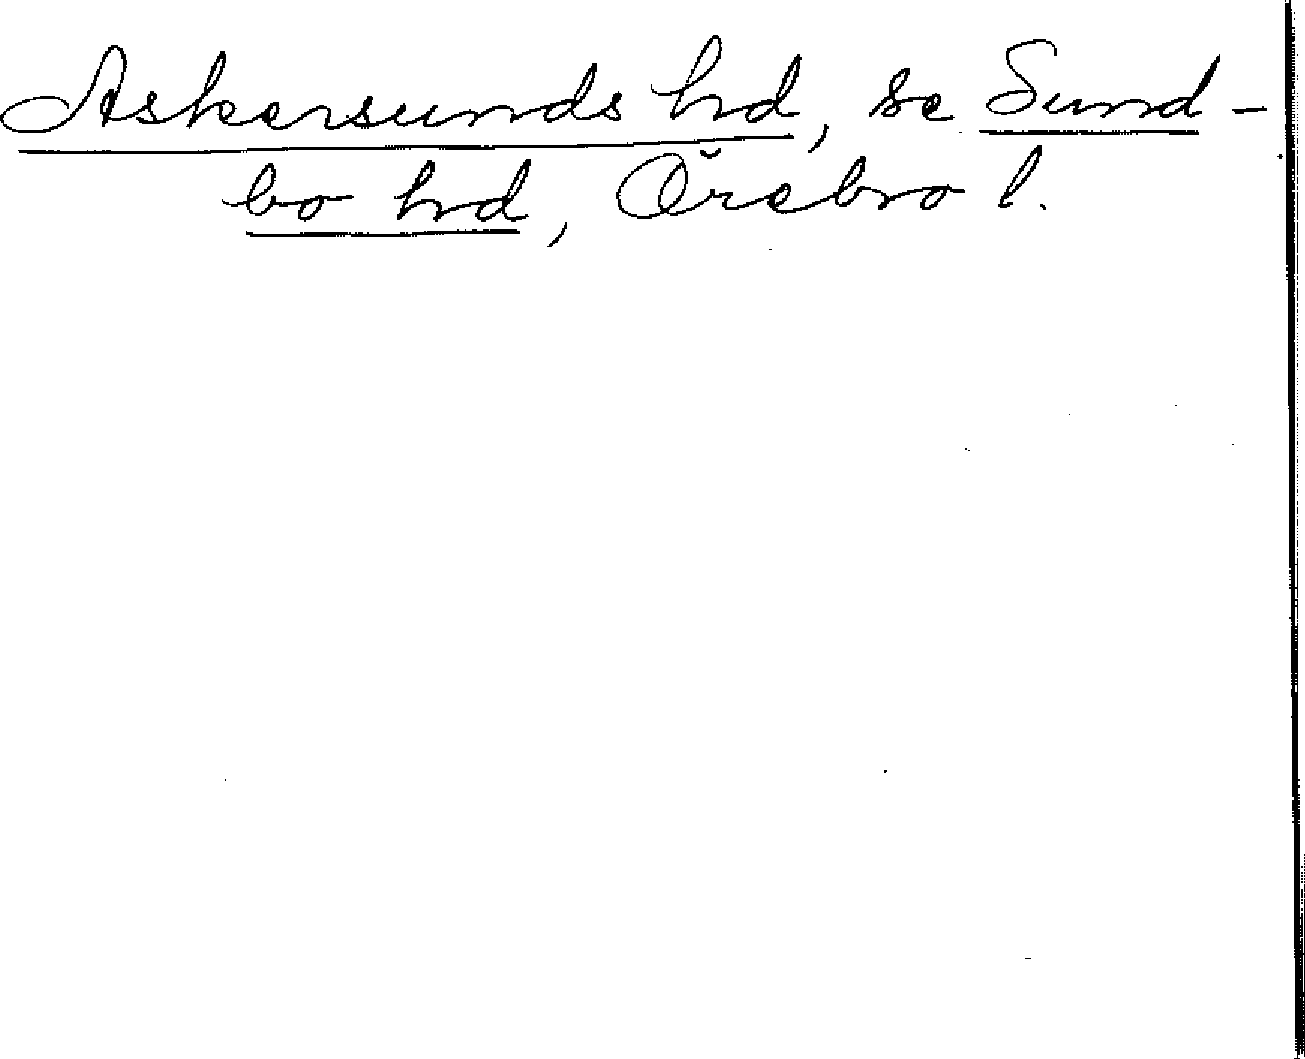 Askersunds hd, se Sund-
bo hd, Örebro l.